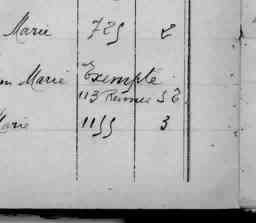 Marie 725 2
Marie Exempté
113 Rennes S E
Marie 1155 3